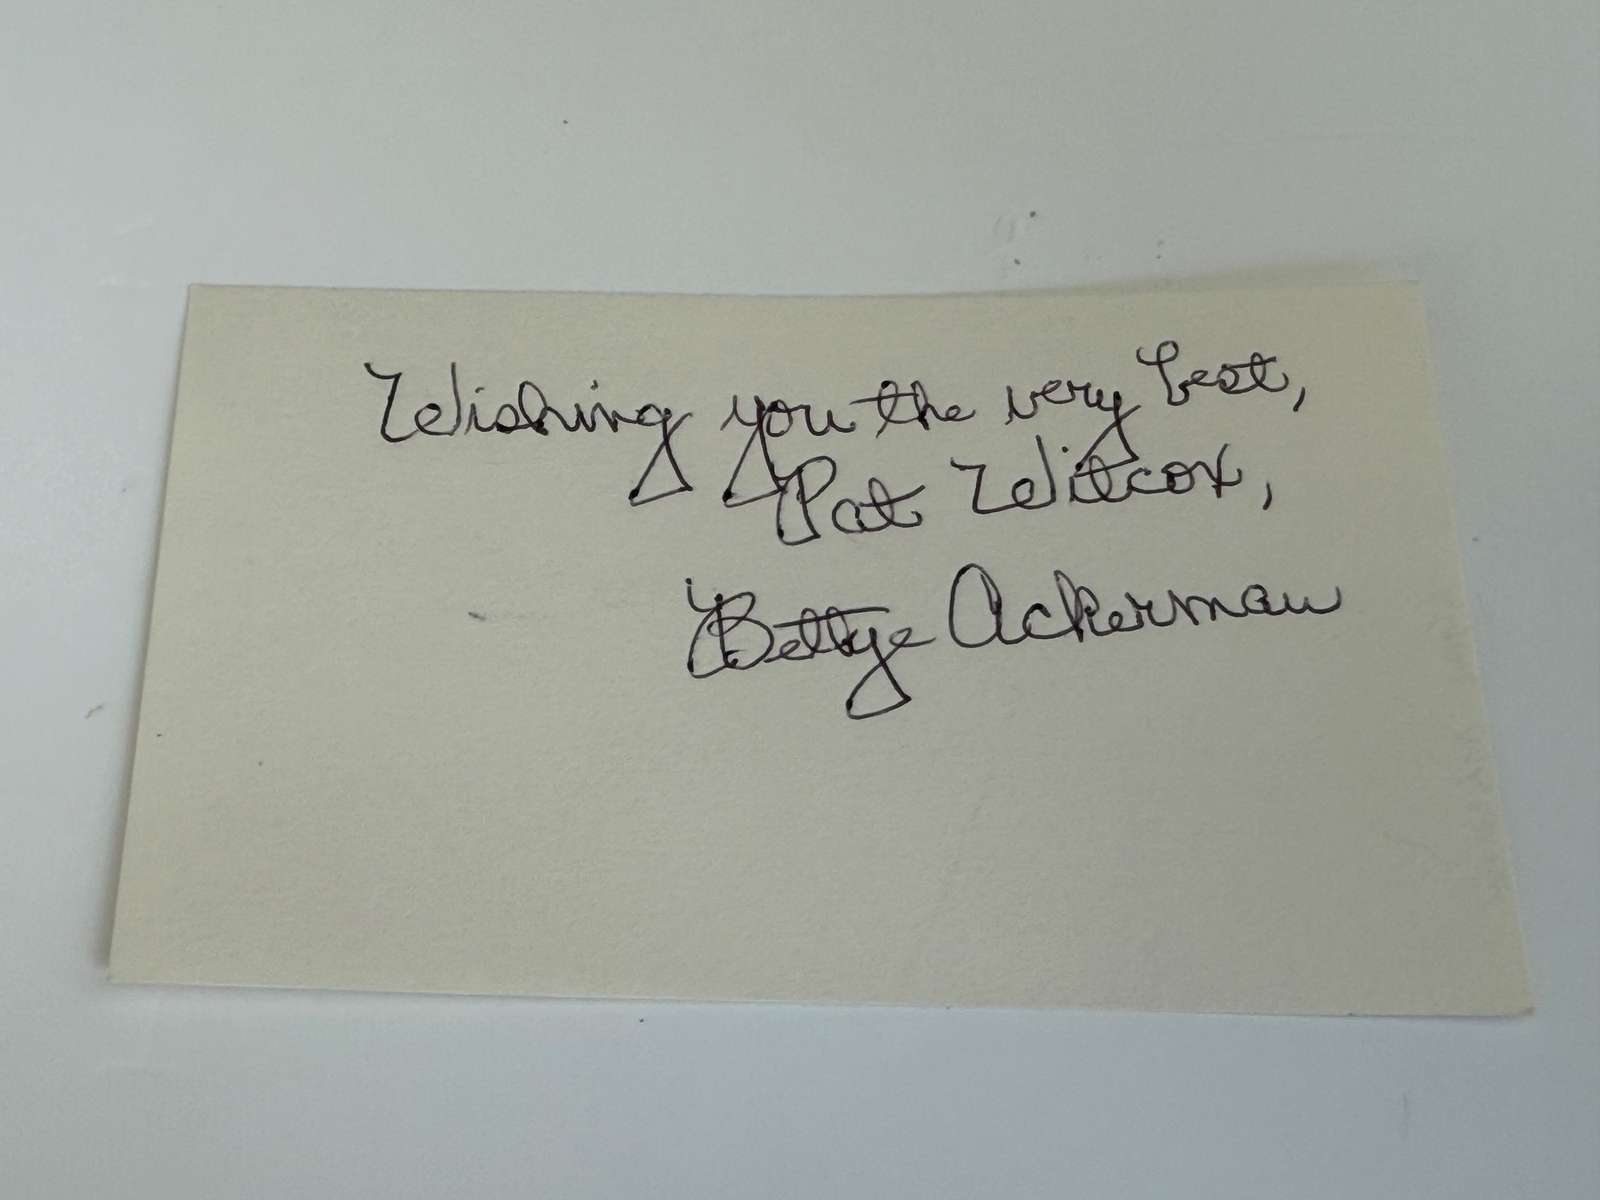 Wishing you the very best,
Pat Wilcox,
Bettye Ackerman